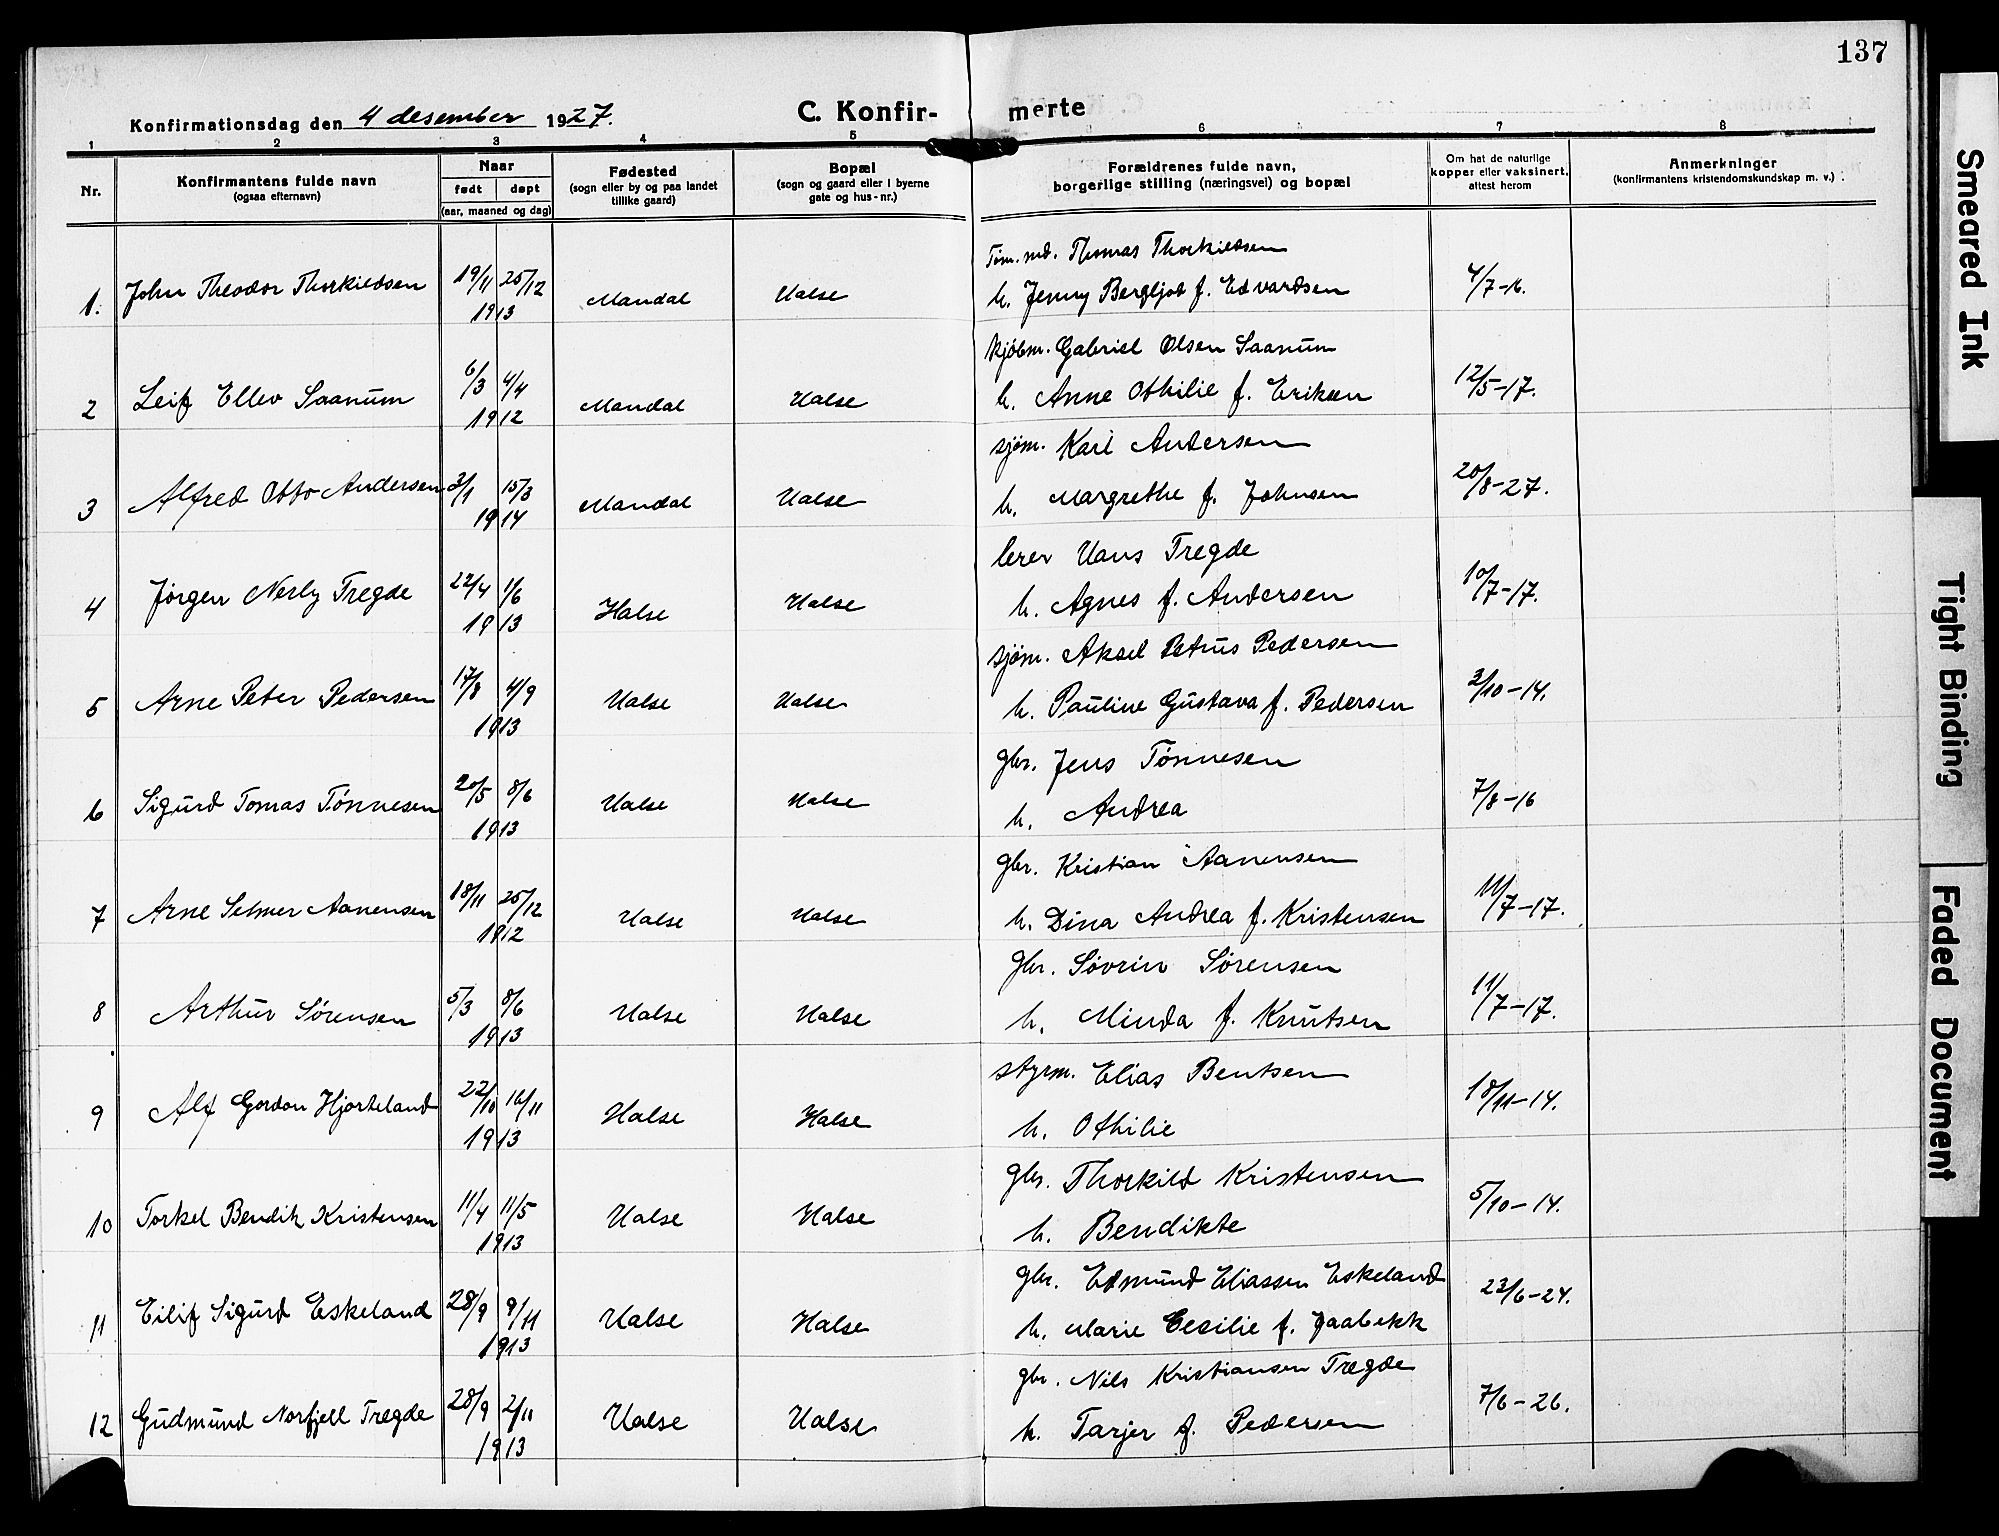 137
Konfirmationsdag den 4 desember 1927.
C. Konfirmerte
1 2 3 4 5 6 7 8
Nr.
Konfirmantens fulde navn
(ogsaa efternavn)
Naar
født døpt
(aar, maaned og dag)
Fødested
(sogn eller by og paa landet
tillike gaard)
Bopæl
(sogn og gaard eller i byerne
gate og hus-nr.)
Forældrenes fulde navn,
borgerlige stilling (næringsvei) og bopæl
Om hat de naturlige
kopper eller vaksinert,
attest herom
Anmerkninger
(konfirmantens kristendomskundskap m. v.)
Tøm.md. Thomas Thorkildsen
1. John Theodor Thorkildsen 19/11 25/12 Mandal Halse h. Jenny Bergljot f. Edvardsen 4/7-16.
1913
kjøbm. Gabriel Olsen Saanum
2 Leif Ellev Saanum 6/3 4/4 Mandal Halse h. Anne Othilie f. Eriksen 12/5-17.
1912
sjøm. Karl Andersen
3 Alfred Otto Andersen 3/1 15/3 Mandal Halse h. Margrethe f. Johnsen 20/8-27.
1914
lærer Hans Tregde
4 Jørgen Nerly Tregde 22/4 1/6 Halse Halse h. Agnes f. Andersen 10/7-17.
1913
sjøm. Aksel Petrus Pedersen
5 Arne Peter Pedersen 17/8 4/9 Halse Halse h. Pauline Gustava f. Pedersen 3/10-14.
1913
gbr. Jens Tønnesen
6 Sigurd Tomas Tønnesen 20/5 8/6 Halse Halse h. Andrea 7/8-16
1913
gbr. Kristian Aanensen
7 Arne Selmer Aanensen 18/11 25/12 Halse Halse h. Dina Andrea f. Kristensen 11/7-17.
1912
gbr. Søvrin Sørensen
8 Arthur Sørensen 5/3 8/6 Halse Halse h. Minda f. Knutsen 11/7-17.
1913
styrm. Elias Bentsen
9 Alf Gordon Hjorteland 22/10 16/11 Halse Halse h. Othilie 18/11-14.
1913
gbr. Thorkild Kristensen
10 Torkel Bendik Kristensen 11/4 11/5 Halse Halse h. Bendikte 5/10-14.
1913
gbr. Edmund Eliassen Eskeland
11 Eilif Sigurd Eskeland 28/9 9/11 Halse Halse h. Marie Cecilie f. Jaabekk 23/6-24.
1913
gbr. Nils Kristiansen Tregde
12 Gudmund Norfjell Tregde 28/9 2/11 Halse Halse h. Tarjer f. Pedersen 7/6-26.
1913
Smeared Ink
Tight Binding
Faded Document